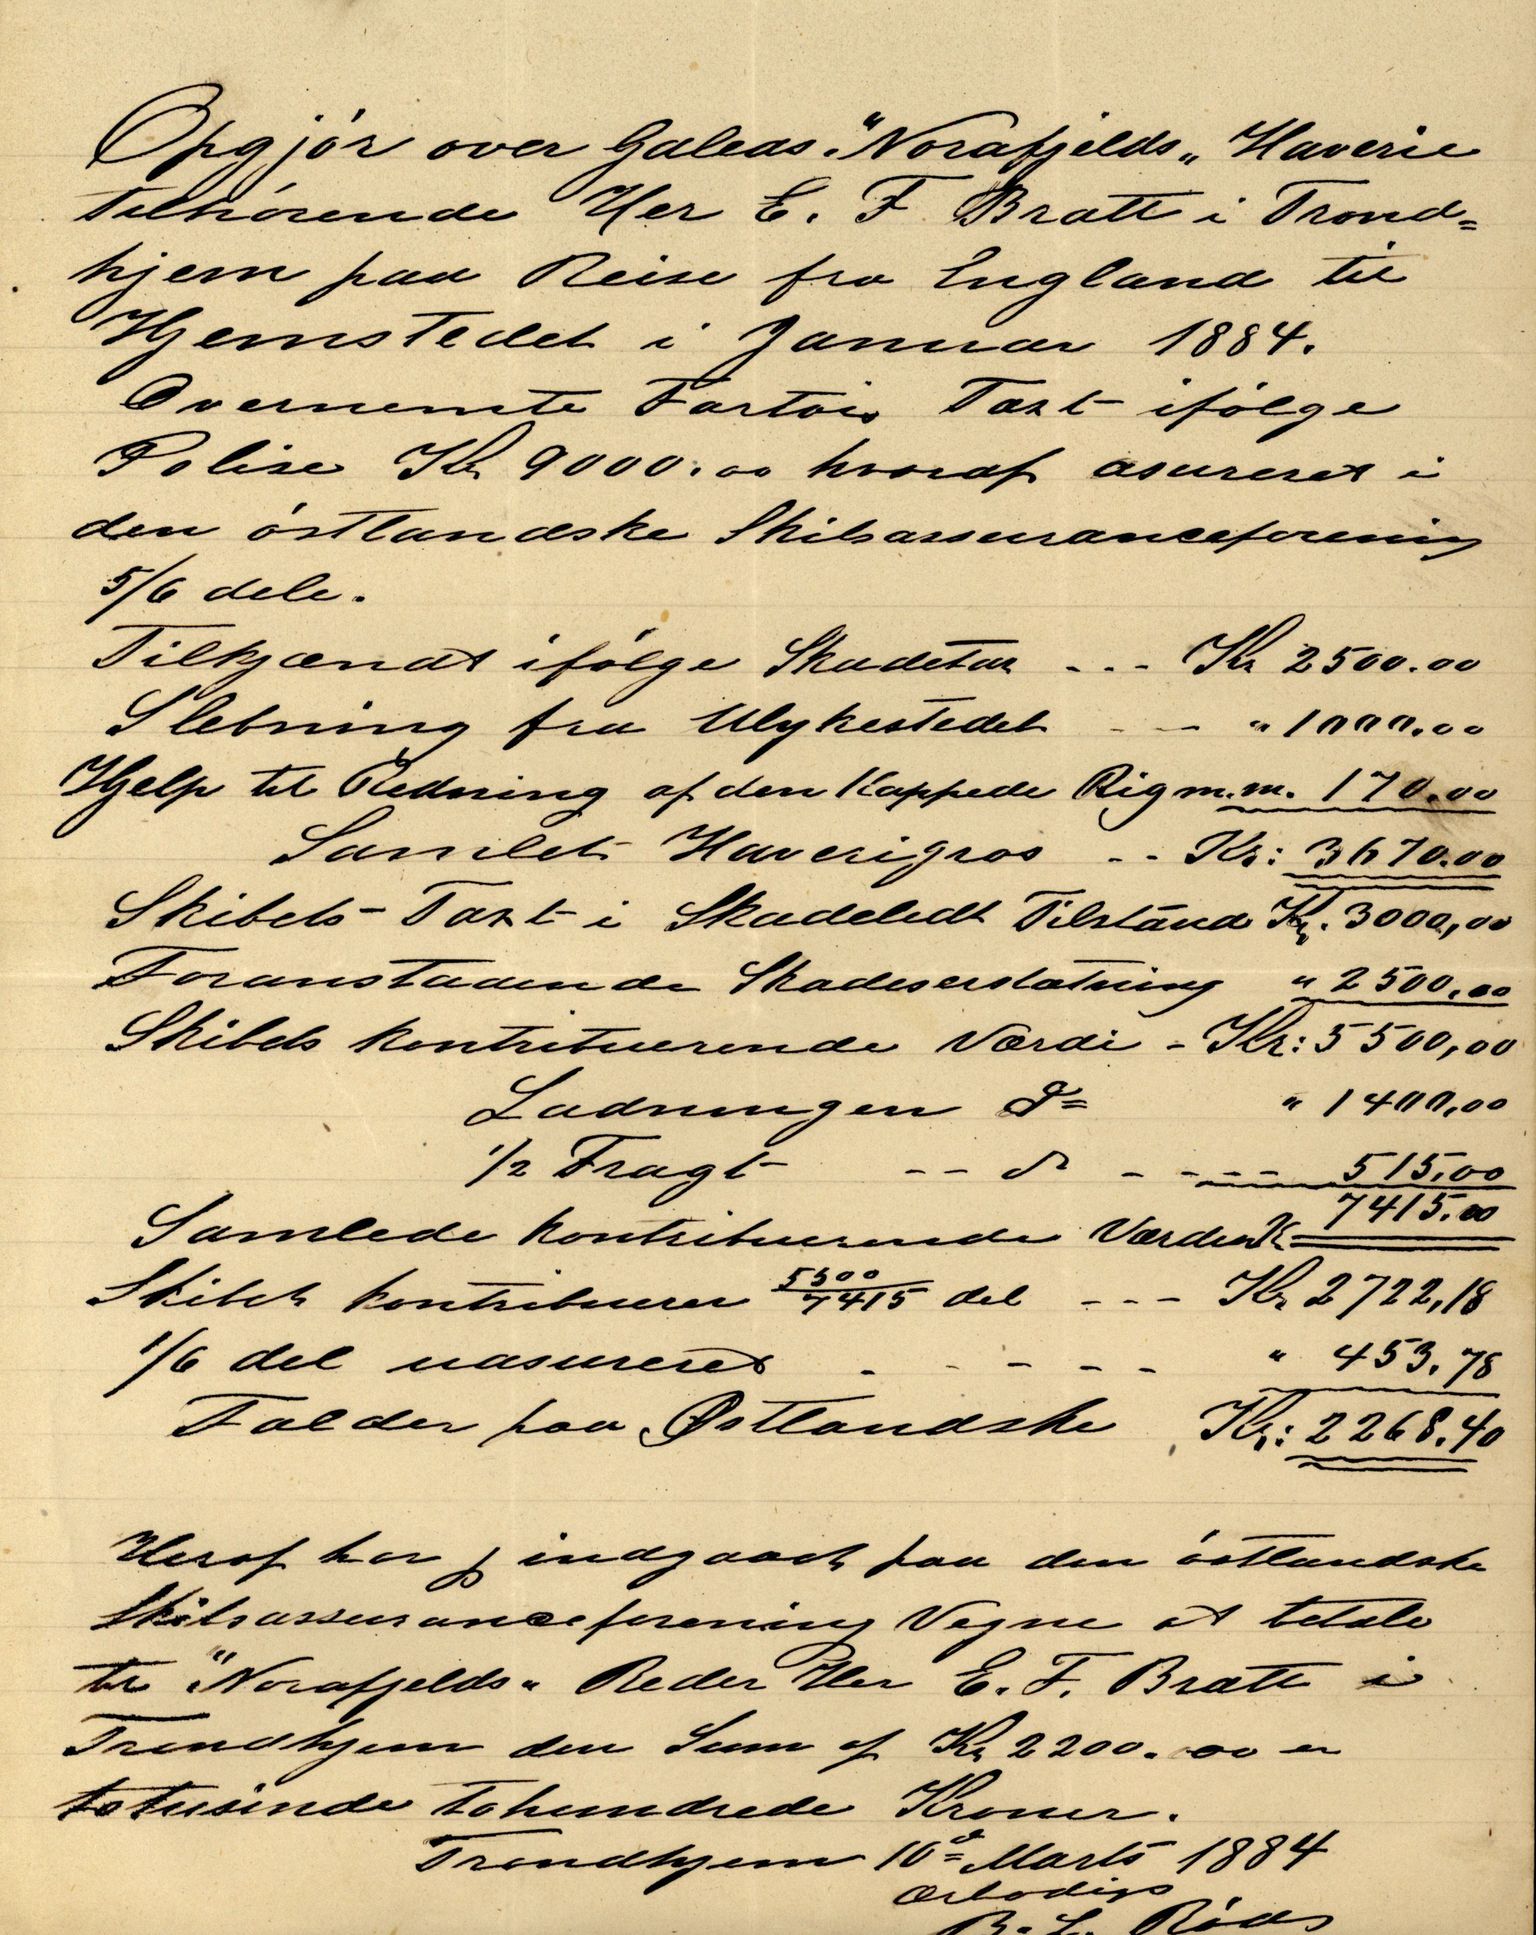 Opgjör over Galeas "Norafjelds" Haverie
tilhörende Her E. F Bratt i Trond=
hjem paa Reise fra England til
Hjemstedet i Januar 1884.
Overnemte Fartöis Taxt ifölge
Polise Kr 9000.00 hvoraf asureret i
den östlandske Skibsassuranceforening
5/6 dele.
Tilkjændt ifölge Skadetax - - - Kr 2500.00
Slebning fra Ulykestedet - - " 1000.00
Hjelp til Redning af den Kappede Rig m.m. 170.00
Samlet Haverigros - - Kr: 3670.00
Skibets Taxt i Skadeledt Tilstand Kr. 3000,00
Foranstaaende Skadeserstatning " 2500.00
Skibets kontribuerende Værdi - Kr: 5500,00
Ladningen do " 1400,00
1/2 Fragt - - do - - - - 515.00
7415.00
Samlede kontribuerende Værdier Kr
Skibet kontribuerer 5500/7415 del - - - Kr 2722,18
1/6 del uasureret - - - - - " 453.78
Falder paa Østlandske Kr: 2268.40
Heraf har jeg indgaaet paa den östlandske
Skibsassuranceforening Vegne at betale
til "Norafjelds" Reder Her E. F. Bratt i
Trondhjem den Sum af Kr 2200.00 er
totusinde tohundrede Kroner.
Trondhjem 10de Marts 1884
Ærbødigs
B. L. Röds